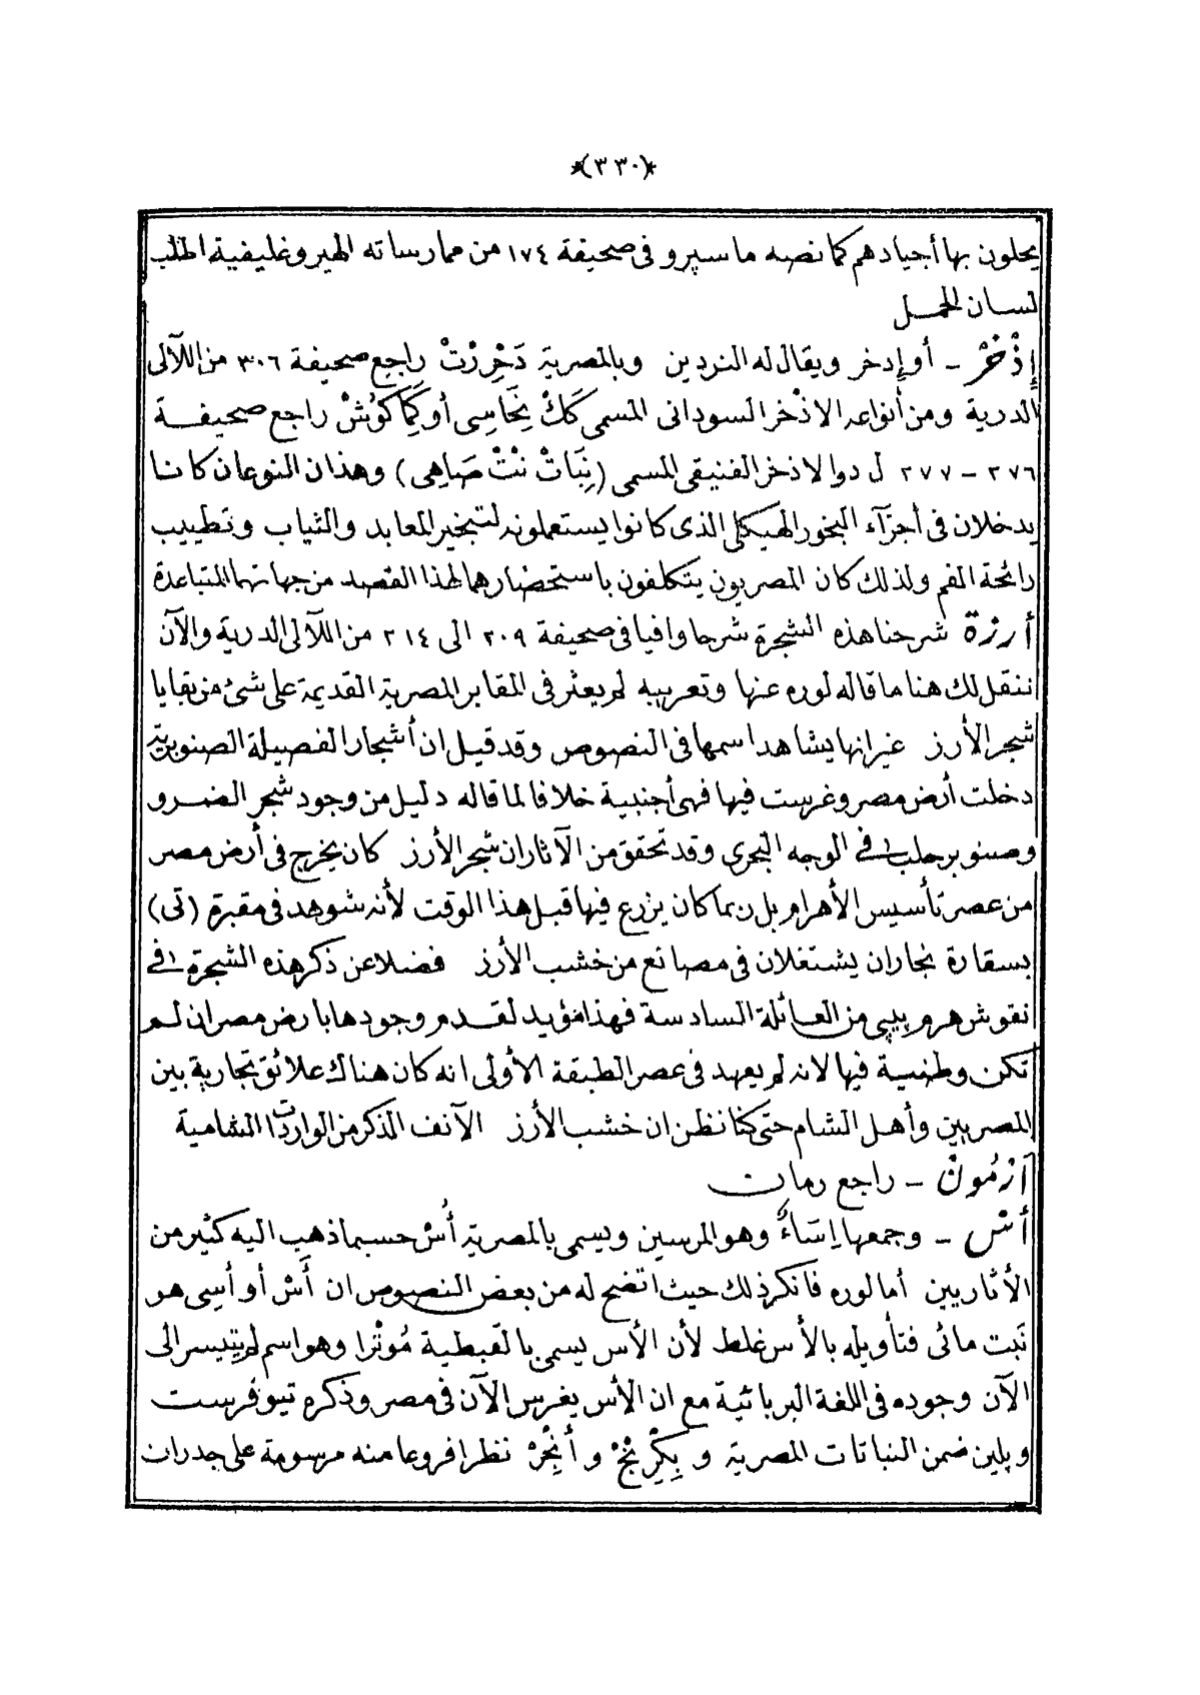 *(٣٣٠)*
يحلون بها أجيادهم كما نصه ماسپرو فى صحيفة ١٧٤ من ممارساته الهيروغليفية اطلب
لسان الحمل
إذْخَرْ - أو إدخر ويقال له النردين وبالمصرية دَخِرْتْ راجع صحيفة ٣٠٦ من اللآلى
الدرية ومن أنواعه الاذخر السودانى المسمى كَكْ نِحَاسِى أو كِمَا كَوُشْ راجع صحيفة
٢٧٦ - ٢٧٧ ل د والاذخر الفنيقى المسمى (نِبَاتْ نْتْ صَاهِى) وهذان النوعان كانا
يدخلان فى أجزآء البخور الهيكلى الذى كانوا يستعملونه لتبخير المعابد والثياب وتطييب
رائحة الفم ولذلك كان المصريون يتكلفون باستحضارهما لهذا القصد من جهاتهما المتباعدة
أرزة شرحنا هذه الشجرة شرحا وافيا فى صحيفة ٢٠٩ الى ٢١٤ من اللآلى الدرية والآن
ننقل لك هنا ما قاله لوره عنها وتعريبه لم يعثر فى المقابر المصرية القديمة على شئ من بقايا
شجر الأرز غير انها يشاهد اسمها فى النصوص وقد قيل ان أشجار الفصيلة الصنوبرية
دخلت أرض مصر وغرست فيها فهى أجنبية خلافا لما قاله دليل من وجود شجر الضرو
وصنوبر حلب فى الوجه البحرى وقد تحقق من الآثار ان شجر الأرز كان يخرج فى أرض مصر
من عصر تأسيس الأهرام بل ربما كان يزرع فيها قبل هذا الوقت لأنه شوهد فى مقبرة (تى)
بسقارة نجاران يشتغلان فى مصانع من خشب الأرز فضلا عن ذكر هذه الشجرة فى
نقوش هرم پيپى من العائلة السادسة فهذا مؤيد لقدم وجودها بأرض مصر ان لم
تكن وطنية فيها لانه لم يعهد فى عصر الطبقة الأولى انه كان هناك علائق تجارية بين
المصريين وأهل الشام حتى كنا نظن ان خشب الأرز الآنف الذكر من الواردات الشامية
آرْمُونْ - راجع رمان
أسْ - وجمعها إسَاءٌ وهو المرسين ويسمى بالمصرية أُسْ حسبما ذهب اليه كثير من
الأثاريين أما لوره فانكر ذلك حيث اتضح له من بعض النصوص ان أَسْ أو أَسِى هو
نَبت مائى فتأويله بالأس غلط لأن الأس يسمى بالقبطية مُوتْرا وهو اسم لم يتيسر الى
الآن وجوده فى اللغة البربائية مع ان الأس يغرس الآن فى مصر وذكره تيوفرست
وپلين ضمن النباتات المصرية و بِكِرِنْجْ و أُنِجَرْ نظرا فروعا منه مرسومة على جدران